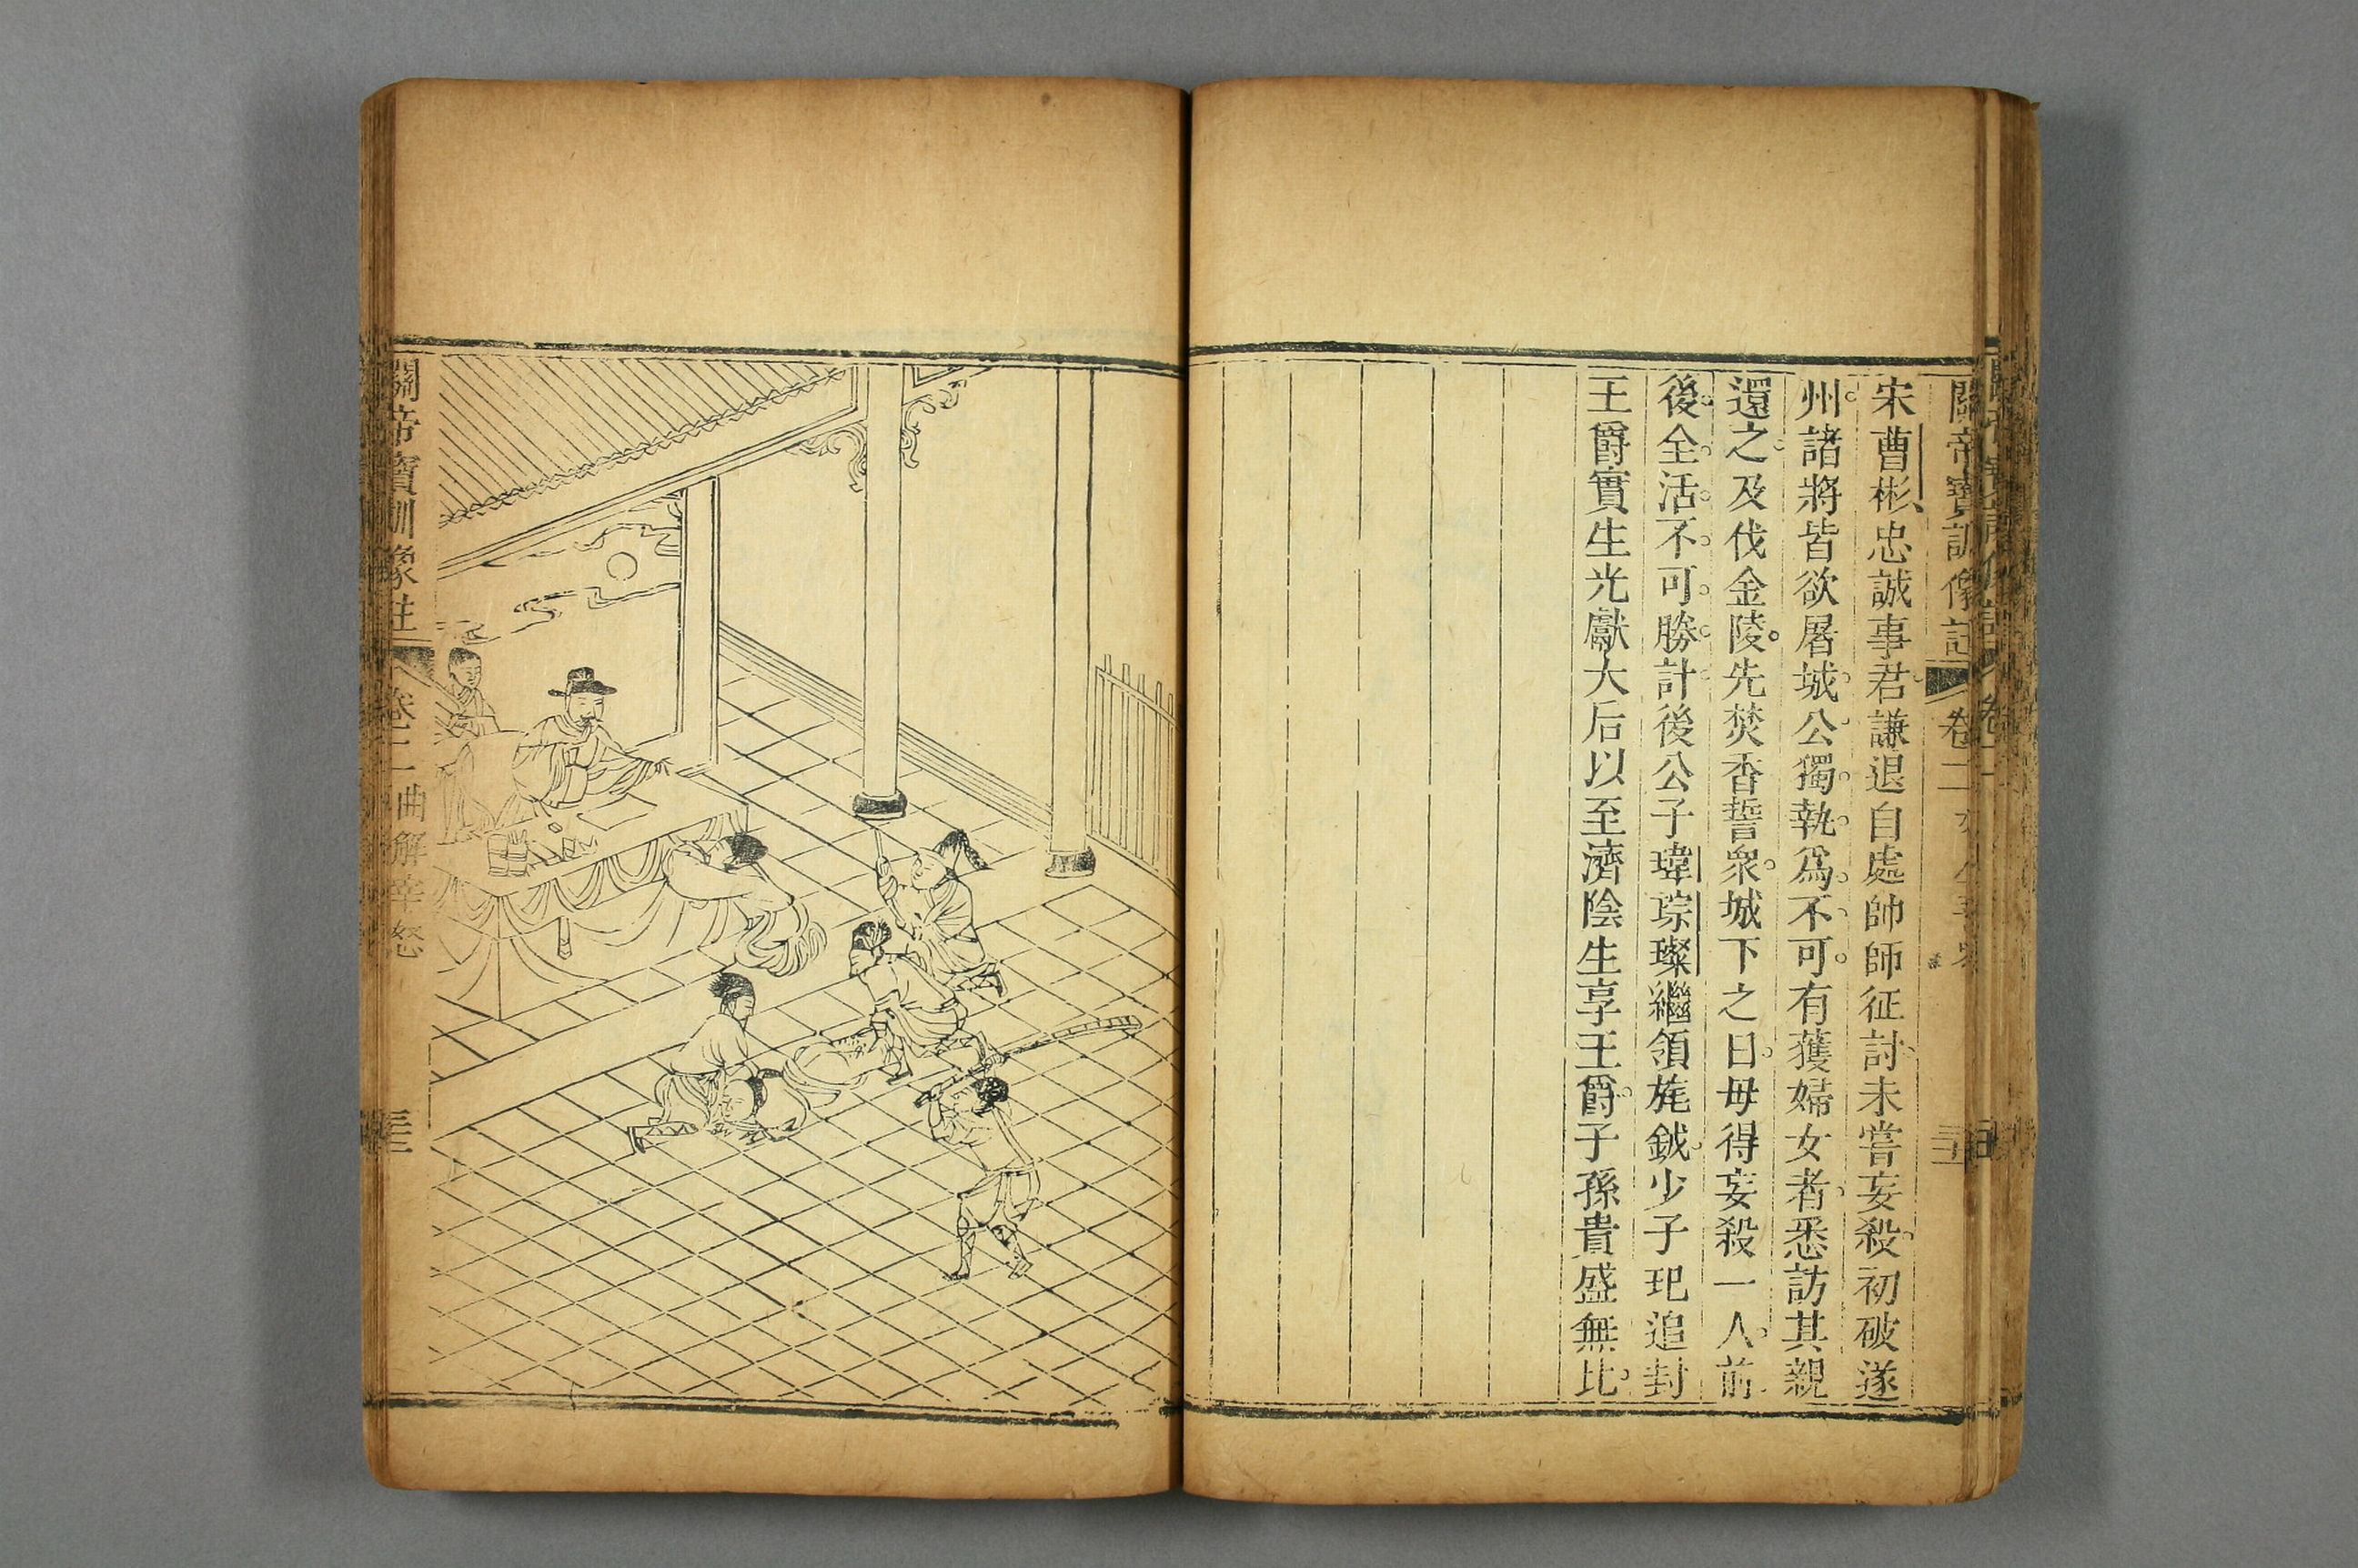 關帝寶訓像註 卷二
宋曹彬忠誠事君謙退自處帥師征討未嘗妄殺初破遂
州諸將皆欲屠城公獨執爲不可有獲婦女者悉訪其親
還之及伐金陵先焚香誓衆城下之日毋得妄殺一人前
後全活不可勝計後公子瑋琮璨繼領旄鉞少子玘追封
王爵實生光獻大后以至濟陰生享王爵子孫貴盛無比
關帝寶訓像註 卷二 曲解宰怒